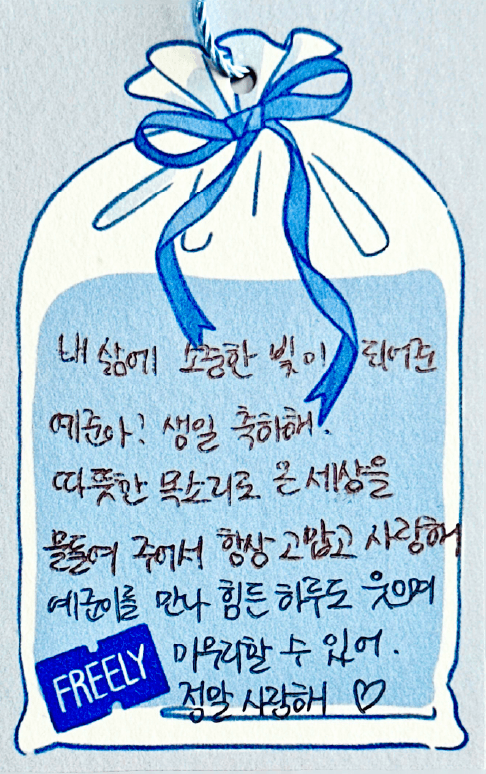 내 삶에 소중한 빛이 되어준
예준아! 생일 축하해.
따뜻한 목소리로 온 세상을
물들여 주어서 항상 고맙고 사랑해
예준이를 만나 힘든 하루도 웃으며
마무리할 수 있어.
정말 사랑해 ♡
FREELY